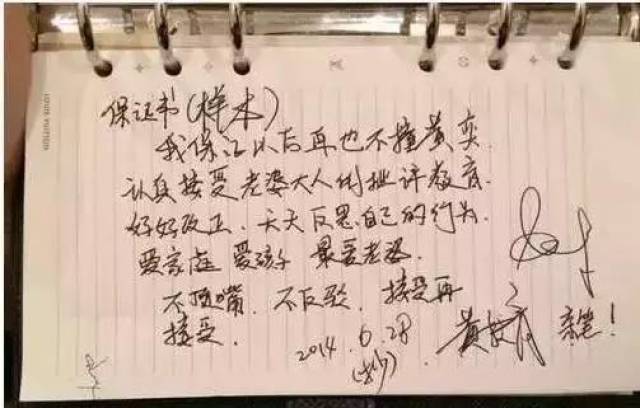 LOUIS VUITTON
保证书(样本)
我保证以后再也不撞黄奕.
认真接受老婆大人的批评教育.
好好改正.天天反思自己的行为.
爱家庭 爱孩子 最爱老婆.
不顶嘴.不反驳.接受再
接受.
2014.6.28
黄 亲笔!